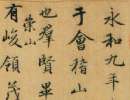 永和九年
于會稽山
也羣賢畢
崇山
有峻領茂